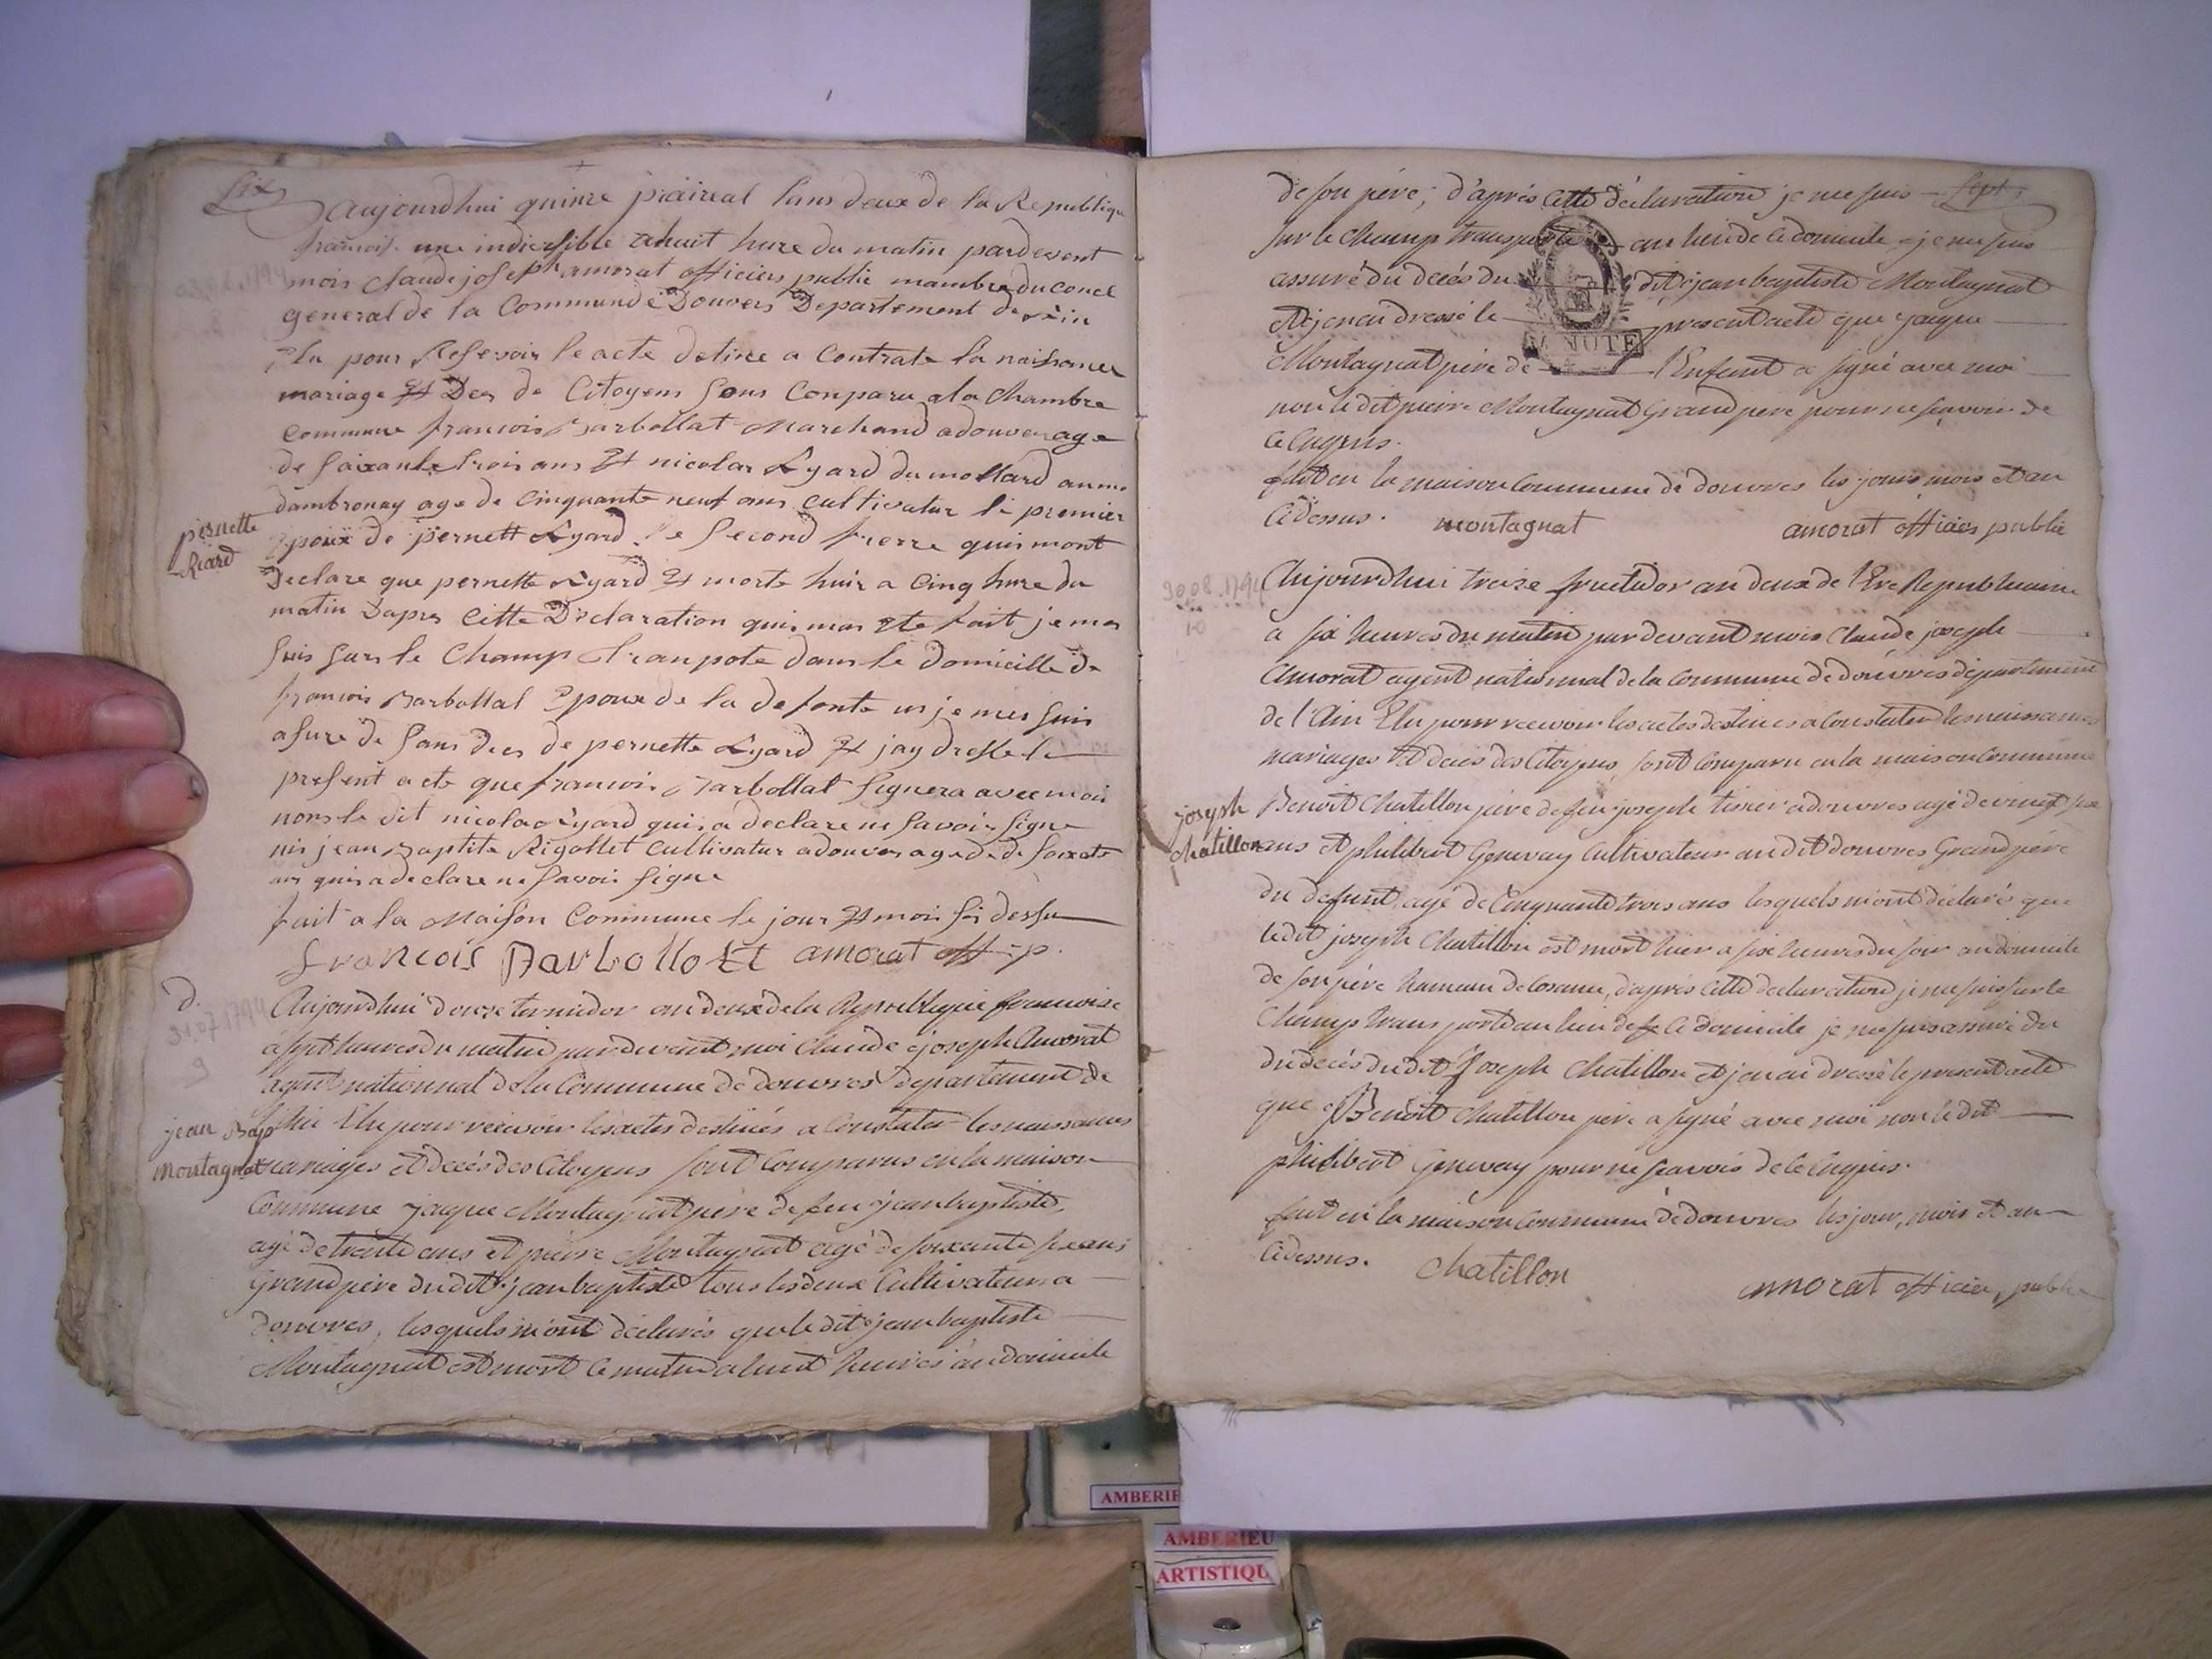 six
aujourdhui quinze praireal lans deux de la Republique
francois. une indiersible a huit hure du matin pardevent
mois claude joseph amorat officiers publie mambre du concl
general de la Commune de Douvers Departement de
Elu pour Resevoir le acte detine a Contrate la naissance
mariage et Des de Citoyens sons Conparu a la chambre
Commune francois Barbollat Marchand a douvre age
de soixante trois ans et nicolas Lyard du mollard
dambronay age de cinquante neuf ans cultivatur le premier
epoux de pernett Lyard le second frerre quis mont
pernette
Riard
Declare que pernette Lyard et morte huir a Cinq hure du
matin Dapres Citte Declaration quis mas ete fait je mes
suis surs le Champ tranpote dans le Domicille de
francois Barbollat Epoux de la defonte je mes suis
asure de sans dees de pernette Lyard et jay dresse le
present acte que francois Barbollat signera avec mois
nons le dit nicolas Lyard quis a declare ne savoir signe
nis jean Baptite Rigollet cultivatur a douvres age de de soixante
ans quis a declare ne savoir signe
fait a la Maison Commune le jour et mois si dessu
francois Barbollet amorat off. p.
d.
31.07.1794
9
Aujourdhui douze termidor an deux de la Republique francoise
à sept heures du matin par devant moi Claude joseph Amorat
agent nationnal de la Commune de douvres departement de
l'Ain Elu pour recevoir les actes destinés a Constater les naissances
jean Bap
Montagnat
mariages et decès des Citoyens sont Comparus en la maison
Commune jaque Montagnat père de feu jean baptiste,
agé de trente ans et pierre Montagnat agé de soixante six ans
Grand père dudit jean baptiste tous les deux Cultivateurs a
douvres, lesquels m'ont déclarés que le dit jean baptiste
Montagnat est mort ce matin a huit heures au domicile
de son père; d'après cette déclaration je me suis sept
sur le champ transporté au lieu de ce domicile je me suis
assuré du décès du dit jean baptiste Montagnat
et j'en ai dressé le present acte que jaque
Montagnat père de l'Enfant a signé avec moi
non le dit pierre Montagnat Grand père pour ne scavoir de
ce enquis.
fait en la maison Commune de douvres les jour mois et an
Cidessus. montagnat amorat officies publie
30.08.1794
10
Aujourdhui treize fructidor an deux de l'Ere Republicaine
a six heures du matin par devant mois Claude joseph
Amorat agent nationnal de la Commune de douvres département
de l'Ain Elu pour recevoir les actes destinés a Constater les naissances
mariages et décès des Citoyens, sont Comparu en la maison Commune
joseph
chatillon
Benoît Chatillon père de feu joseph a douvres agé de vingt six
ans et philibert Genevay Cultivateur au dit douvres Grand père
du defunt, agé de Cinquante trois ans lesquels m'ont déclaré que
le dit joseph Chatillon est mort hier a six heures du soir au domicile
de son père hameau de Cosance, d'après cette declaration je me suis sur le
Champ transporté au lieu de ce domicile je me suis assuré du
du decés du dit Joseph Chatillon et j'en ai dressé le present acte
que Benoît Chatillon père a signé avec moi non le dit
philibert Genevay pour ne scavoir de ce enquis.
fait en la maison Commune de douvres les jour, mois et an
Cidessus. Chatillon amorat officier, public
MINOTE
AMBERIE
AMBERIEU
ARTISTIQU